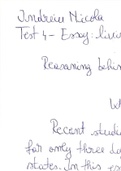 Andreea Nicola
Test 4 - Essay:
Reasoning behin
W
Recent studi
for only three
states. In this es